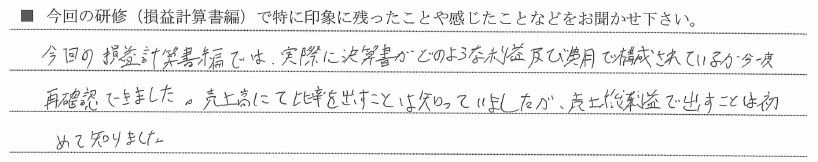 ■ 今回の研修（損益計算書編）で特に印象に残ったことや感じたことなどをお聞かせ下さい。
今回の損益計算書編では、実際に決算書がどのような利益及び費用で構成されているか今一度
再確認できました。売上高にて比率を出すことは知っていましたが、売上総利益で出すことは初
めて知りました